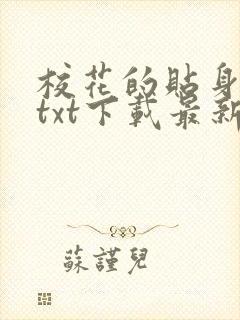 校花的貼身
txt下載最新
蘇謹兒